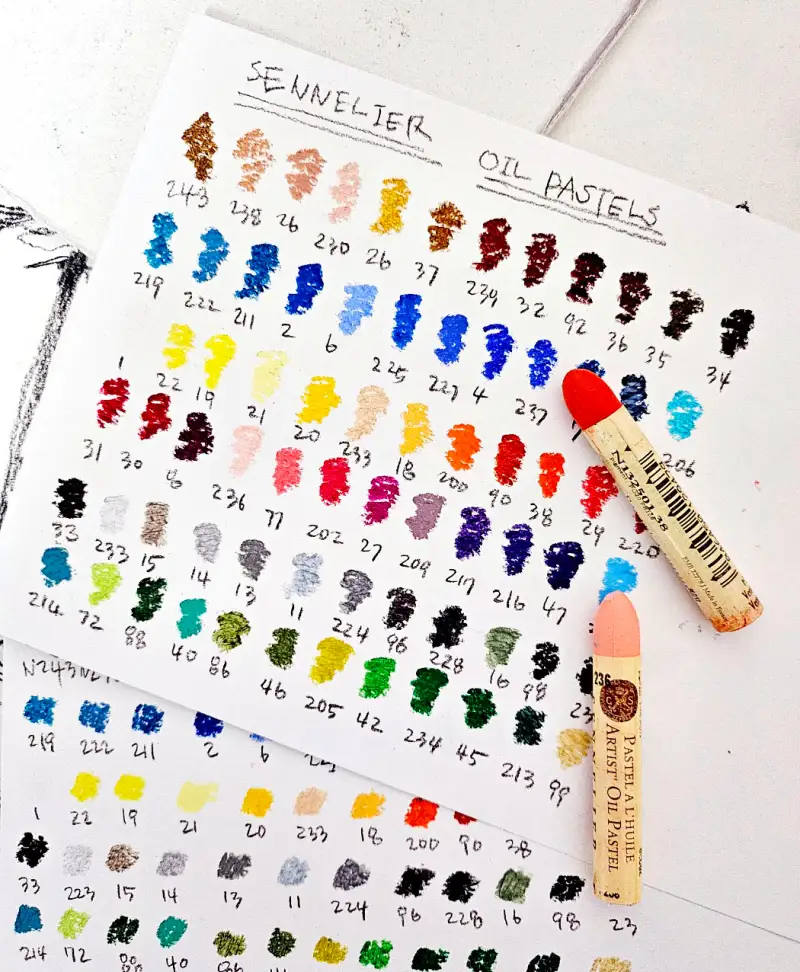 SENNELIER OIL PASTELS
243 238 26 230 26 37 239 32 92 36 35 34
219 222 211 2 6 225 227 4 237 206
1 22 19 21 20 233 18 200 90 38 29 220
31 30 8 236 77 202 27 209 217 216 47
33 233 15 14 13 11 224 96 228 16 98 23
214 72 88 40 86 46 205 42 234 45 213 99
N132501.38
236
PASTEL A L'HUILE
ARTIST' OIL PASTEL
219 222 211 2 6
1 22 19 21 20 233 18 200 90 38
33 223 15 14 13 11 224 96 228 16 98 23
214 72 88 40